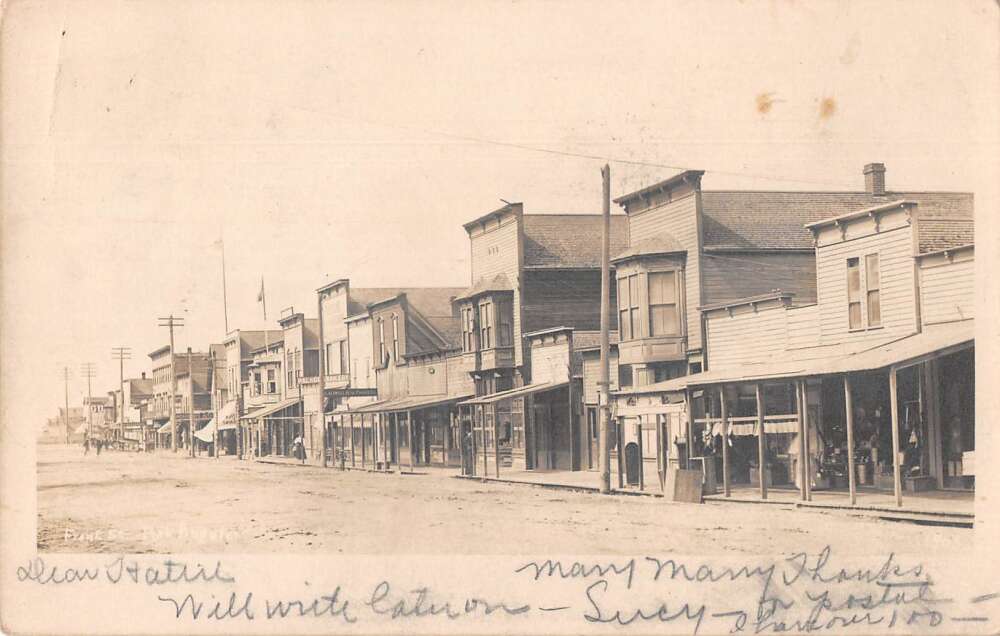 Front St. Port Angeles
Dear Hattie
Will write later on —
Many Many Thanks
for postal
Lucy — I have over 100 —